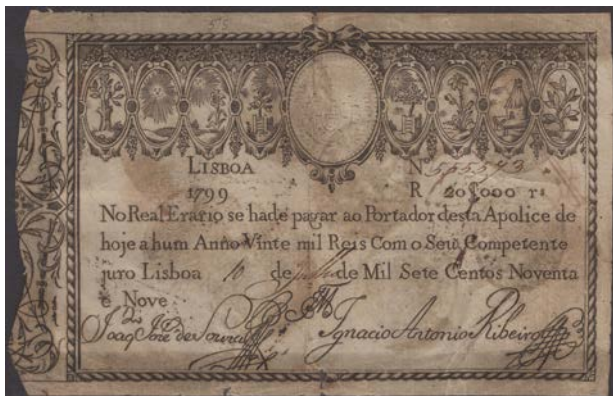 55
LISBOA
1799
R 20$000 rs
No Real Erario se hade pagar ao Portador desta Apolice de
hoje a hum Anno Vinte mil Reis Com o Seu Competente
juro Lisboa 10 de de Mil Sete Centos Noventa
e Nove
Joaq Joze de Souza Ignacio Antonio Ribeiro